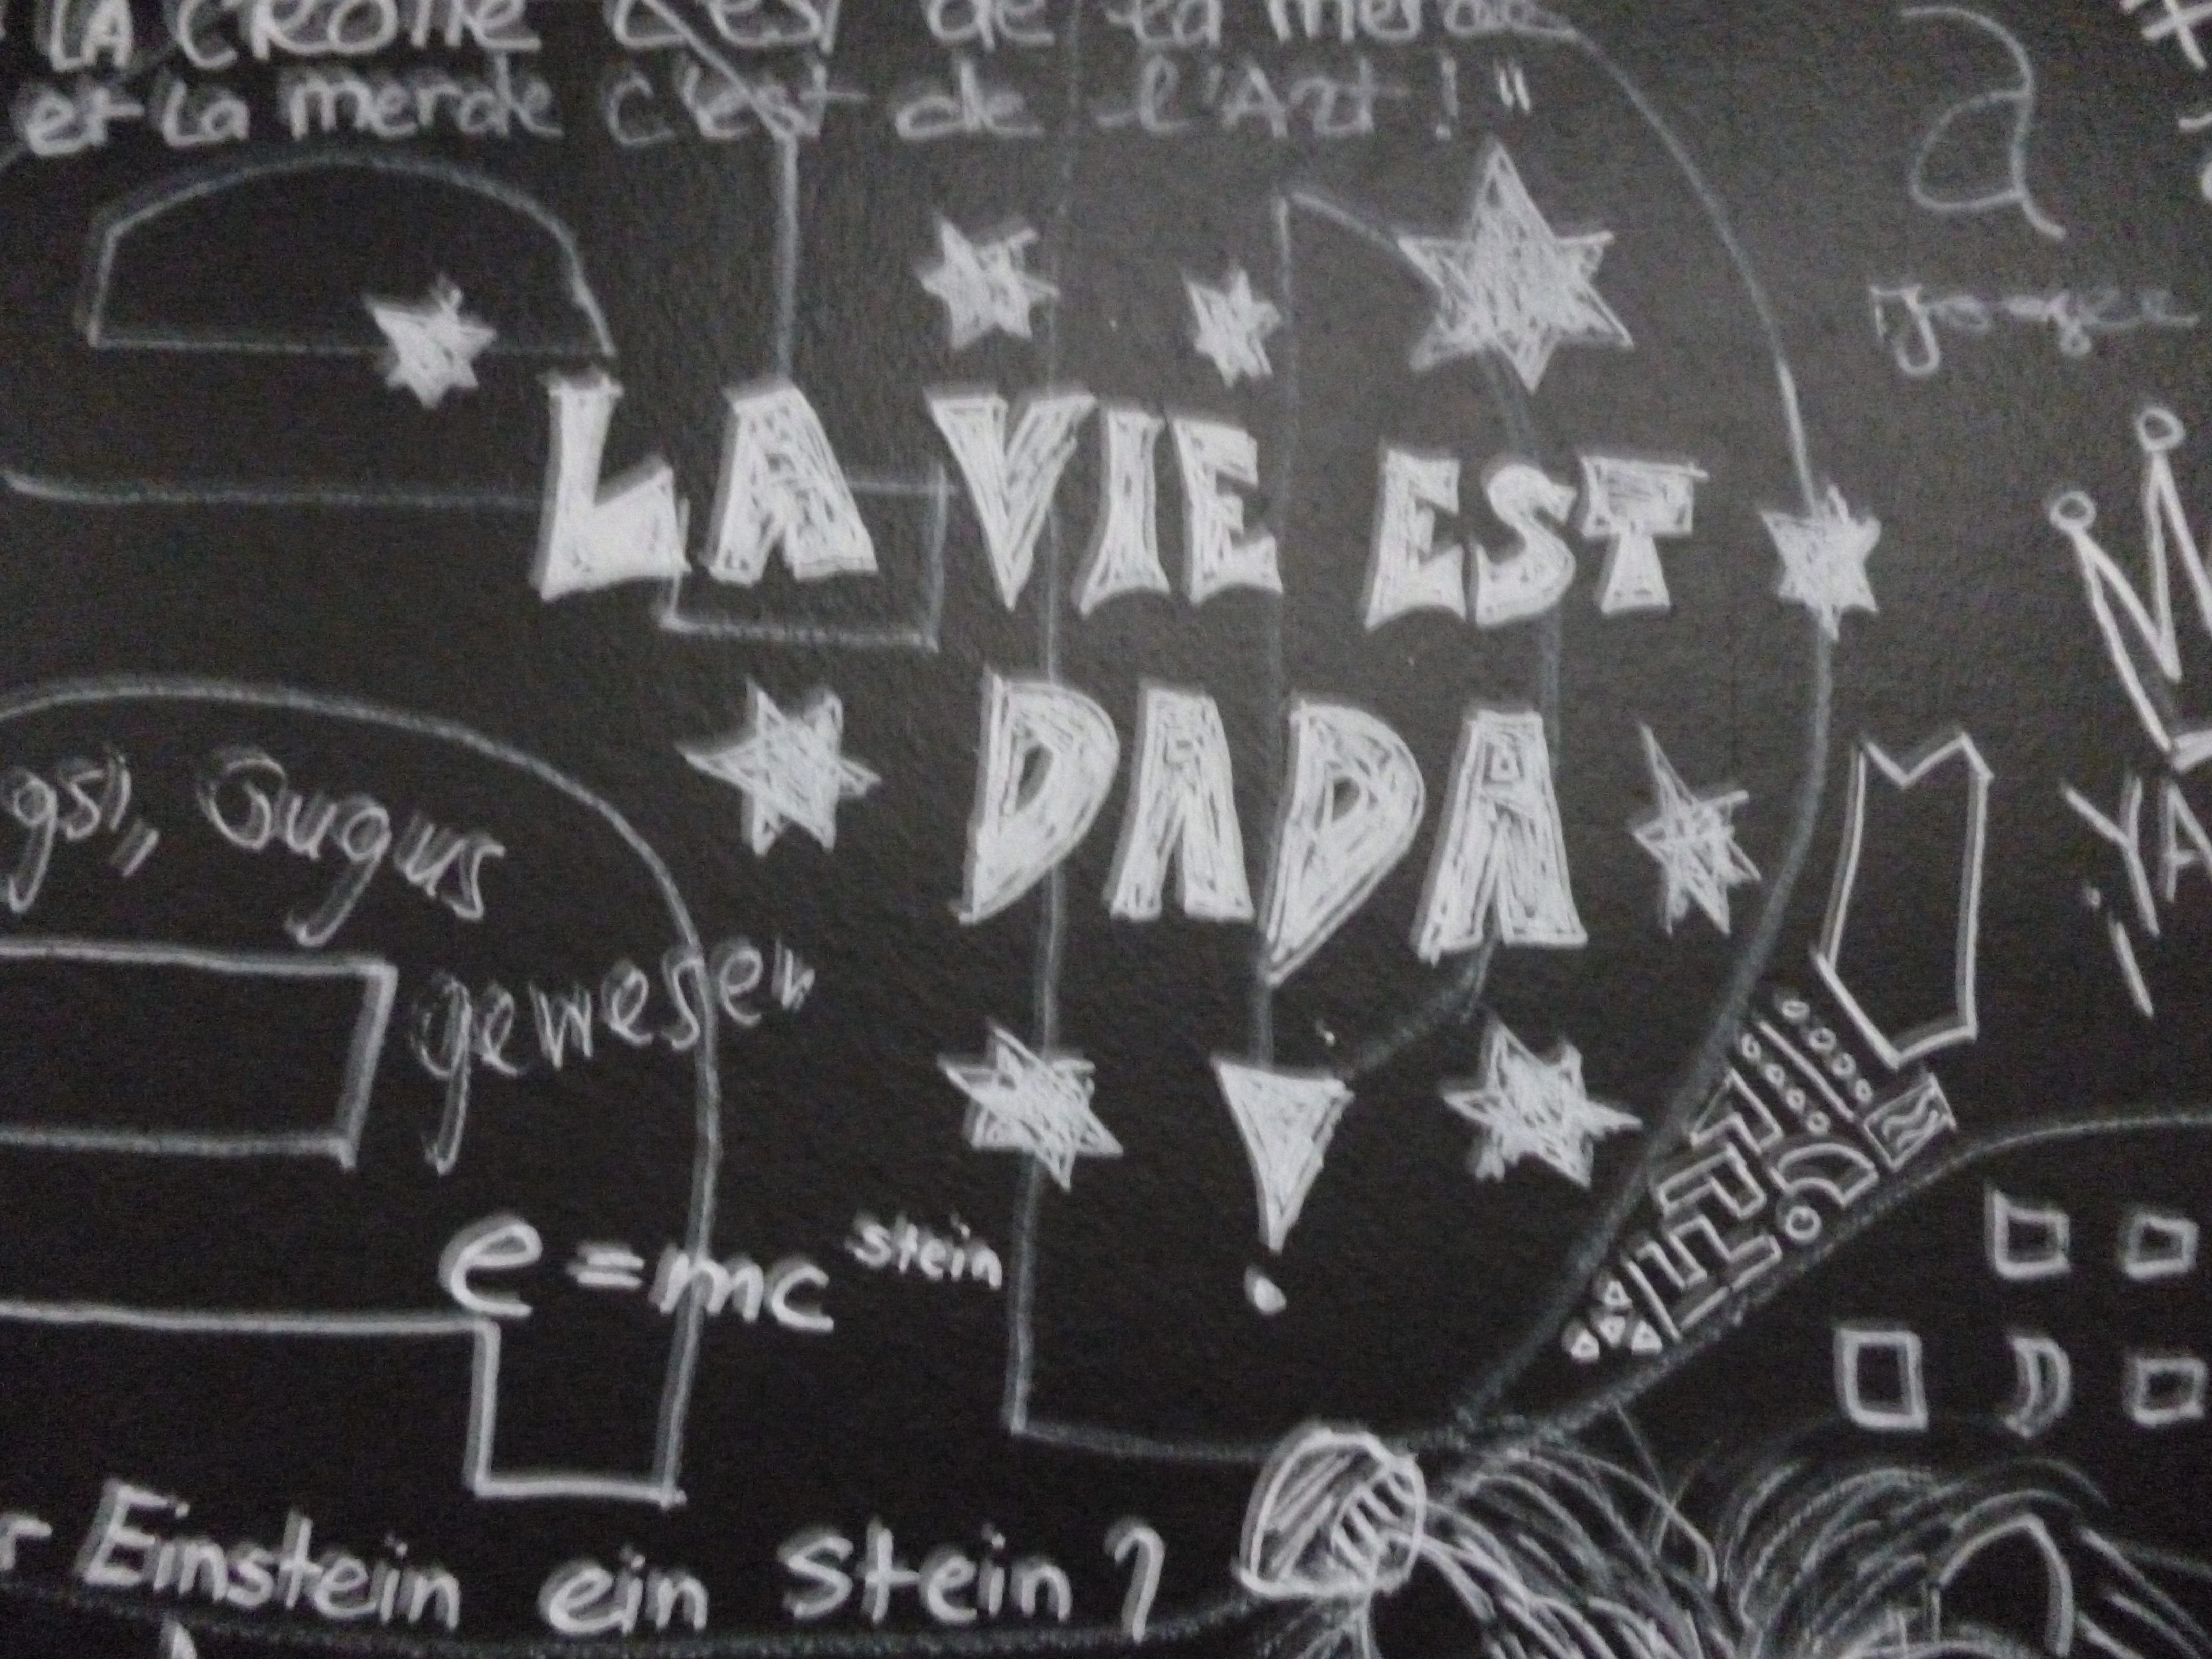 LA CROTTE C'est de la merde
et La merde c'est de l'Art ! "
a
LA VIE EST
DADA
!
gsi, Gugus
gewesen
YA
e = mc stein
r Einstein ein Stein ?